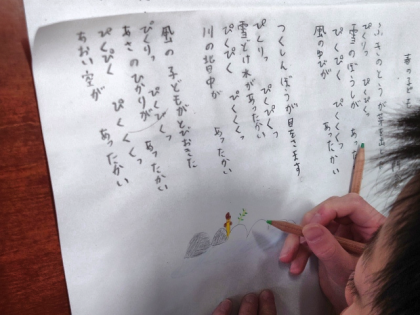 ふきのとうが芽を出
ぴくりっ ぴくぴくっ
雪のぼうしが あった
ぴくぴく ぴくくくっ
風の音が あったかい
つくしんぼうが目をさます
ぴくりっ ぴくぴくっ
雪どけ水が あったかい
ぴくぴく ぴくくくっ
川の背中が あったかい
風の子どもがとびおきた
ぴくりっ ぴくぴくっ
あさのひかりが あったかい
ぴくぴく ぴくくくっ
あおい空が あったかい